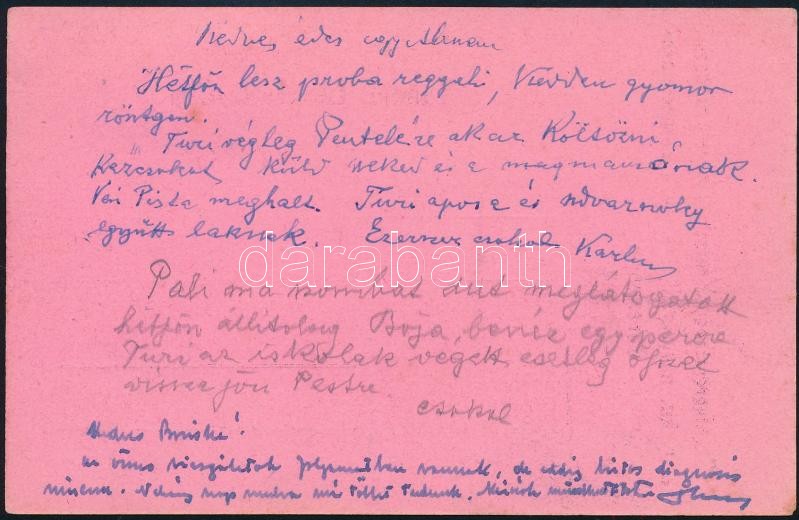 Kedves édes egy
Hétfőn lesz proba reggeli, Kedden gyomor
röntgen.
Turi végleg Pentelére akar Költözni,
Kezcsokot küld neked és a nagymamának.
Pista meghalt. Turi apósa és udvarnoky
együtt laknak. Ezerszer csókol
darabanth
Pali ma szombat d.u. meglátogatott
hétfőn állitolag Bója, benéz egy percre
Turi az iskolák végett esetleg ősszel
vissza jön Pestre.
csokol
Kedves Böriske!
az vizsgálatok folyamatban vannak, de eddig biztos diagnosis
nincsen. Néhány nap mulva már többet tudunk.